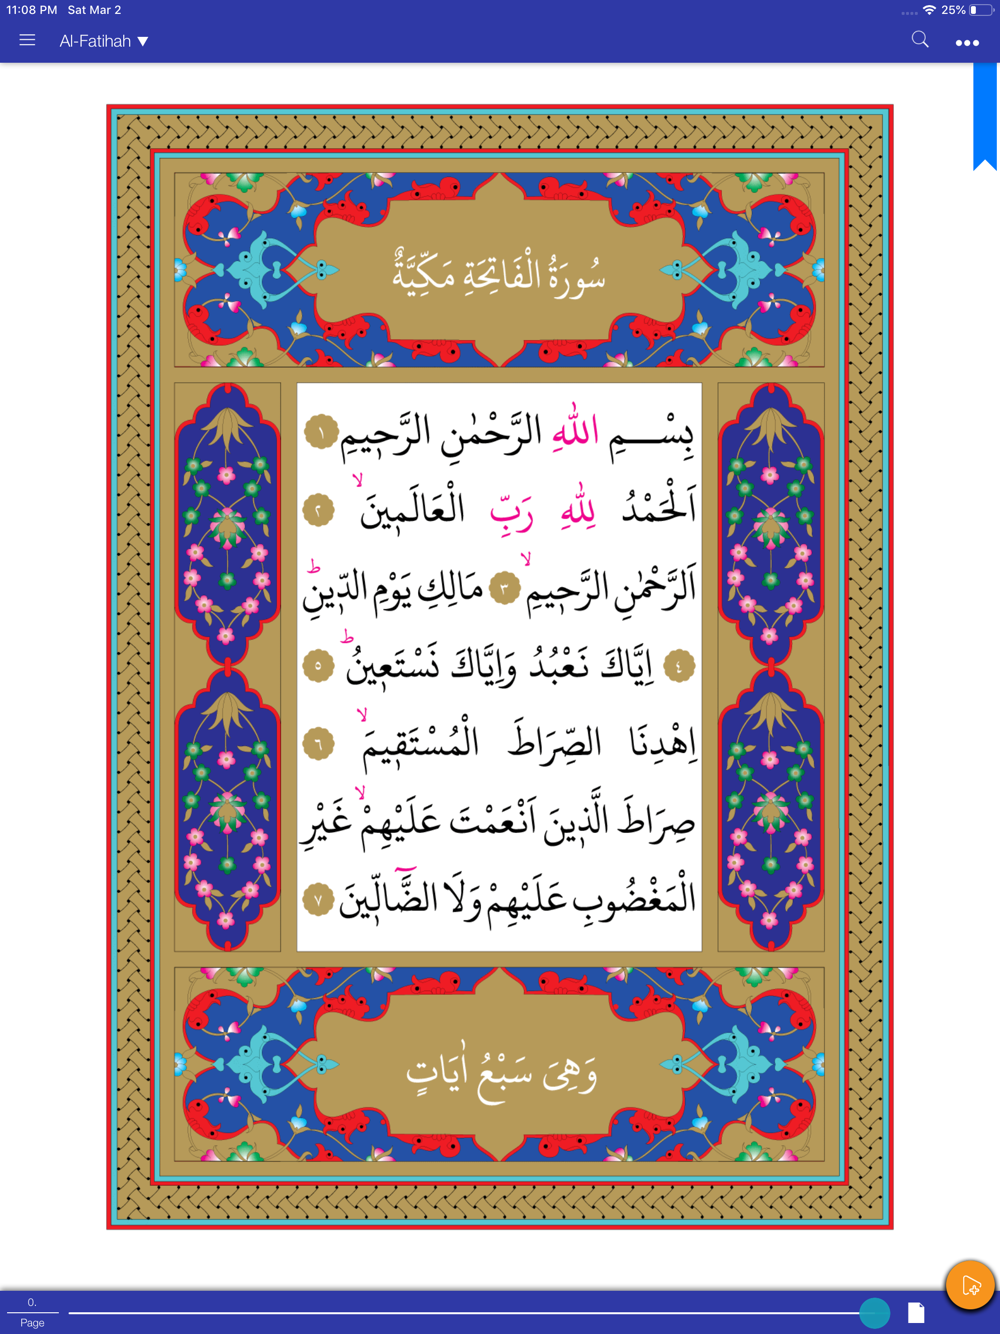 11:08 PM Sat Mar 2 25%
Al-Fatihah ▼
سُورَةُ الْفَاتِحَةِ مَكِّيَّةٌ
بِسْـــمِ اللّٰهِ الرَّحْمٰنِ الرَّح۪يمِ ١
اَلْحَمْدُ لِلّٰهِ رَبِّ الْعَالَم۪ينَۙ ٢
اَلرَّحْمٰنِ الرَّح۪يمِۙ ٣ مَالِكِ يَوْمِ الدّ۪ينِۜ
٤ اِيَّاكَ نَعْبُدُ وَاِيَّاكَ نَسْتَع۪ينُۜ ٥
اِهْدِنَا الصِّرَاطَ الْمُسْتَق۪يمَۙ ٦
صِرَاطَ الَّذ۪ينَ اَنْعَمْتَ عَلَيْهِمْۙ غَيْرِ
الْمَغْضُوبِ عَلَيْهِمْ وَلَا الضَّٓالّ۪ينَ ٧
وَهِيَ سَبْعُ اٰيَاتٍ
0.
Page